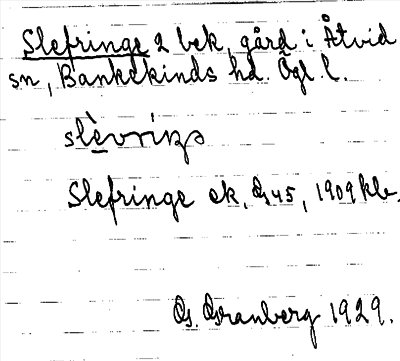 Slefringe 2 bek, gård i Åtvid
sn, Bankekinds hd. Ögl. l.
slèvriŋə
Slefringe ek, G45, 1909 kle.
G. Granberg 1929.